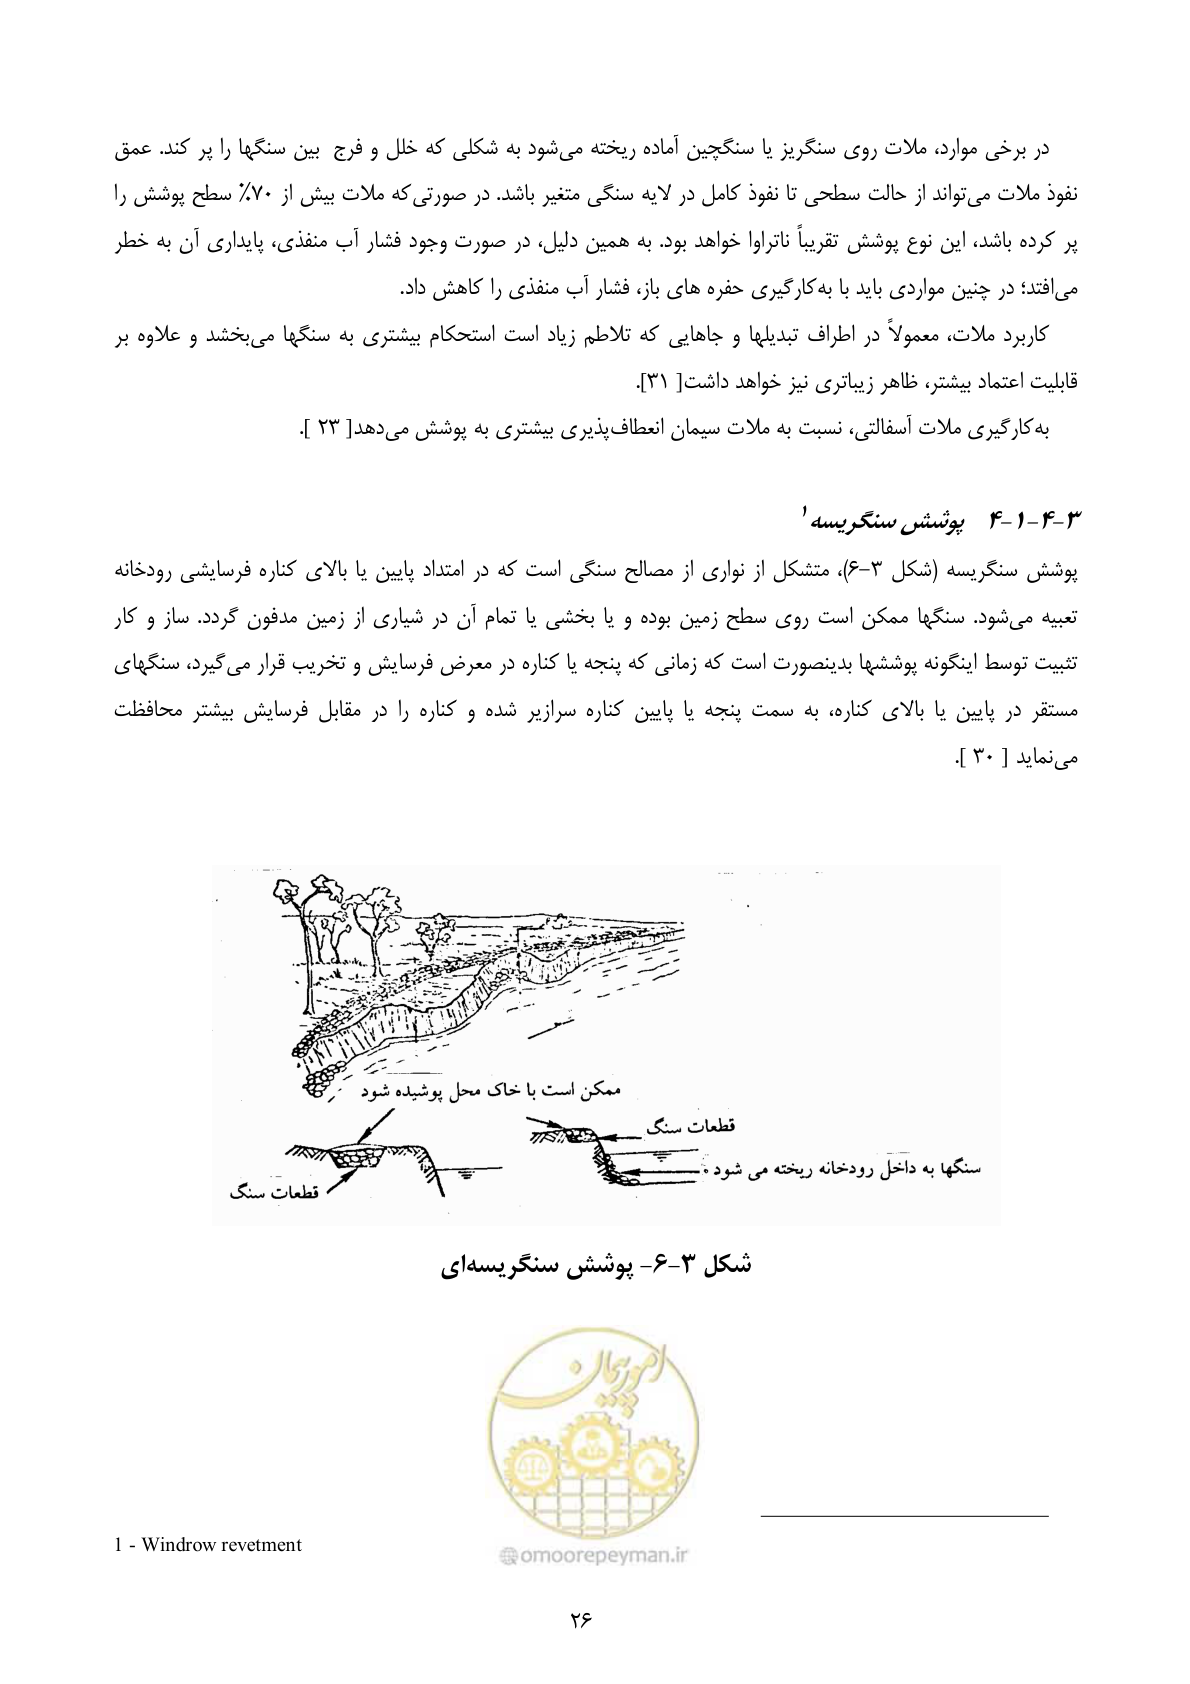 در برخی موارد، ملات روی سنگریز یا سنگچین آماده ریخته می‌شود به شکلی که خلل و فرج بین سنگها را پر کند. عمق
نفوذ ملات می‌تواند از حالت سطحی تا نفوذ کامل در لایه سنگی متغیر باشد. در صورتی‌که ملات بیش از ۷۰٪ سطح پوشش را
پر کرده باشد، این نوع پوشش تقریباً ناتراوا خواهد بود. به همین دلیل، در صورت وجود فشار آب منفذی، پایداری آن به خطر
می‌افتد؛ در چنین مواردی باید با به‌کارگیری حفره های باز، فشار آب منفذی را کاهش داد.
کاربرد ملات، معمولاً در اطراف تبدیلها و جاهایی که تلاطم زیاد است استحکام بیشتری به سنگها می‌بخشد و علاوه بر
قابلیت اعتماد بیشتر، ظاهر زیباتری نیز خواهد داشت[ ۳۱].
به‌کارگیری ملات آسفالتی، نسبت به ملات سیمان انعطاف‌پذیری بیشتری به پوشش می‌دهد[ ۲۳ ].
۳-۴-۱-۴ پوشش سنگریسه ۱
پوشش سنگریسه (شکل ۳-۶)، متشکل از نواری از مصالح سنگی است که در امتداد پایین یا بالای کناره فرسایشی رودخانه
تعبیه می‌شود. سنگها ممکن است روی سطح زمین بوده و یا بخشی یا تمام آن در شیاری از زمین مدفون گردد. ساز و کار
تثبیت توسط اینگونه پوششها بدینصورت است که زمانی که پنجه یا کناره در معرض فرسایش و تخریب قرار می‌گیرد، سنگهای
مستقر در پایین یا بالای کناره، به سمت پنجه یا پایین کناره سرازیر شده و کناره را در مقابل فرسایش بیشتر محافظت
می‌نماید [ ۳۰ ].
ممکن است با خاک محل پوشیده شود
قطعات سنگ
سنگها به داخل رودخانه ریخته می شود
قطعات سنگ
شکل ۳-۶- پوشش سنگریسه‌ای
امور پیمان
1 - Windrow revetment
@omoorepeyman.ir
۲۶